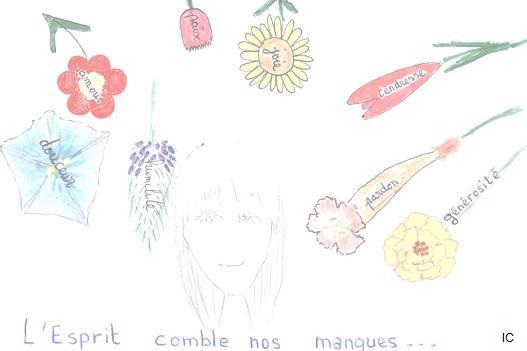 paix
joie
amour
tendresse
douceur
humilité
pardon
générosité
L'Esprit comble nos manques...
IC